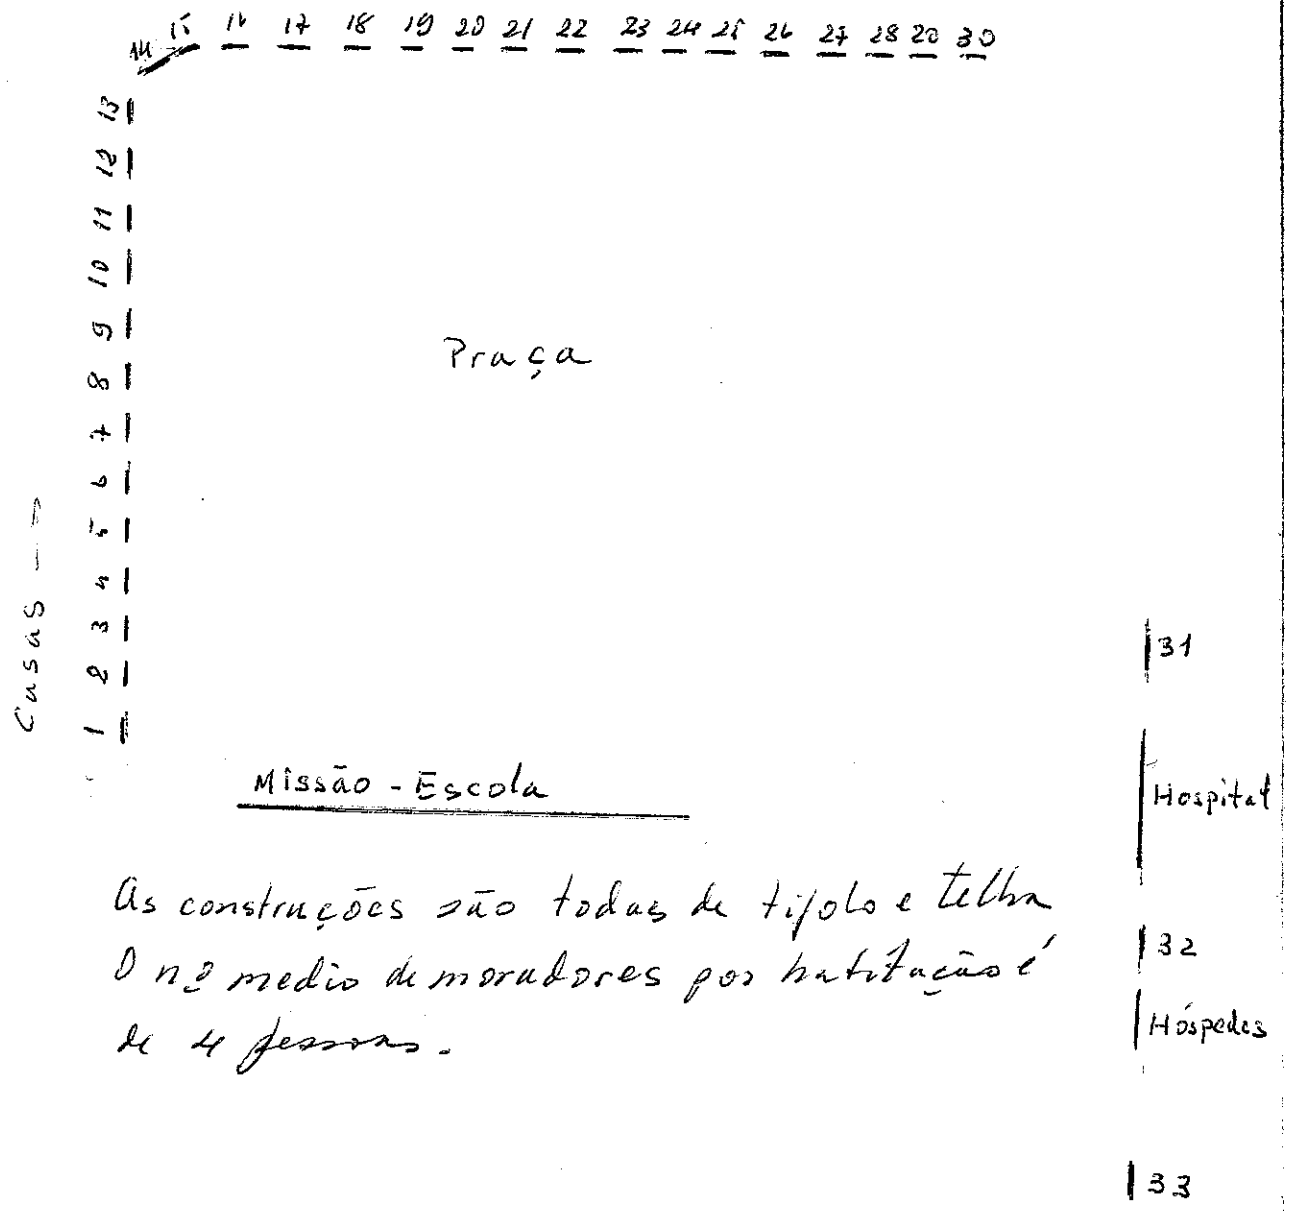 14 15 16 17 18 19 20 21 22 23 24 25 26 27 28 29 30
13
12
11
10
9
8
7
6
5
4
3
2
1
Casas
Praça
31
Missão - Escola
Hospital
As construções são todas de tijolo e telha
O nº medio de moradores por habitação é
de 4 pessoas.
32
Hóspedes
33